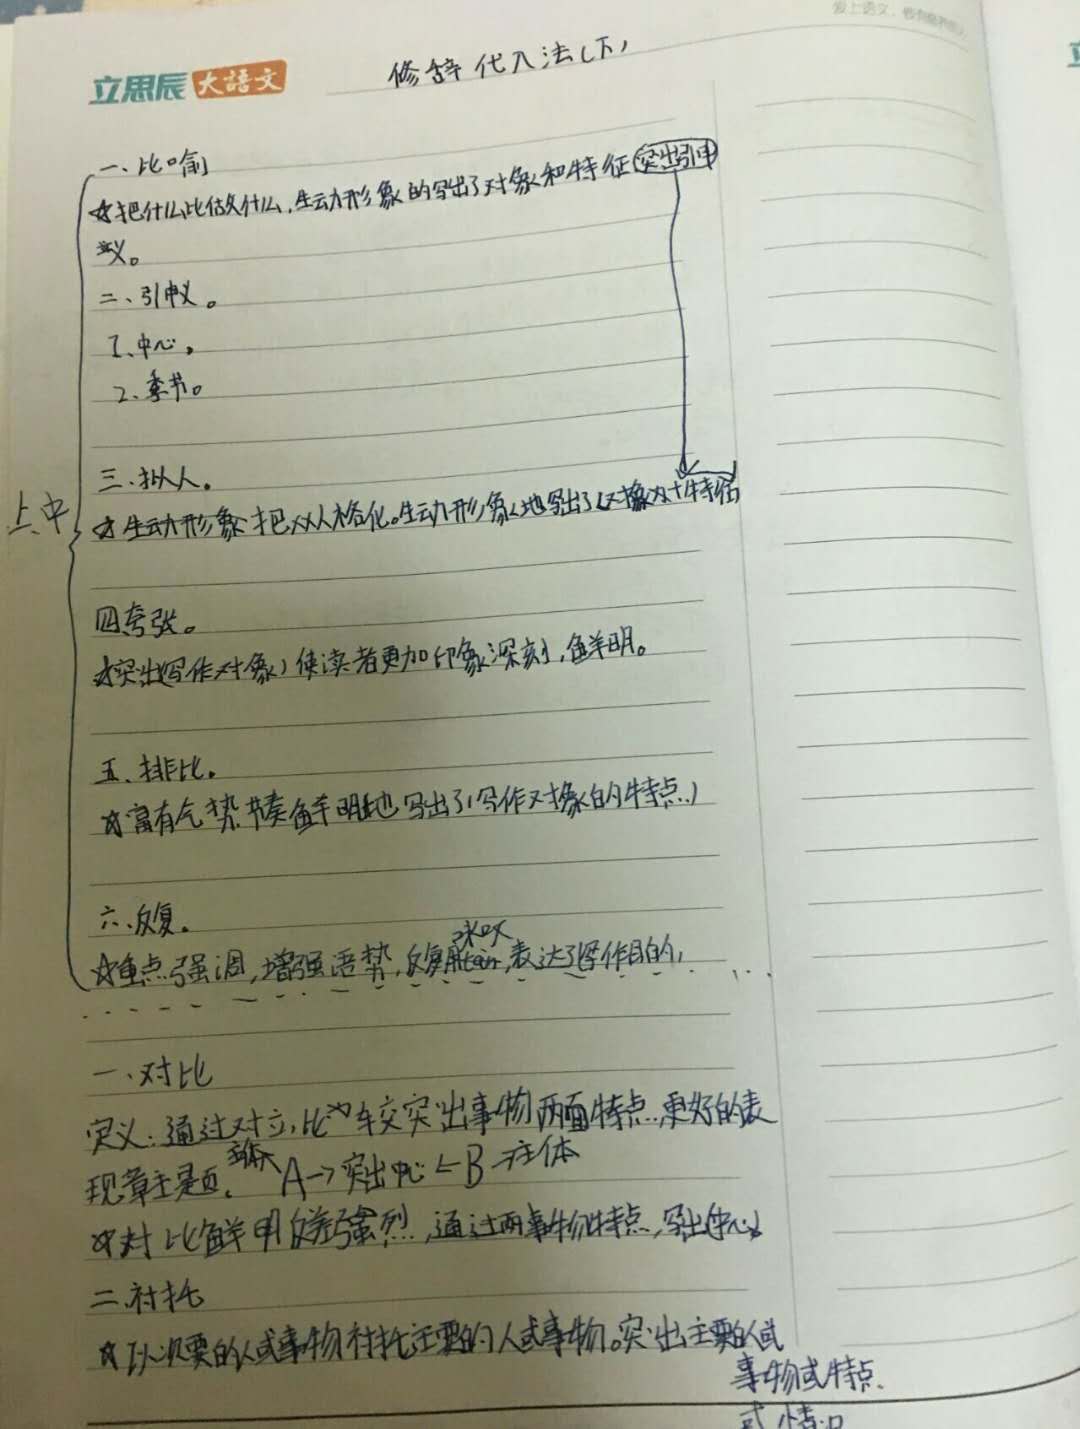 爱上语文，
立思辰大語文
修辞代入法(下)
一、比喻
☆把什么比做什么,生动形象的写出了对象和特征突出引申
义。
二、引申义。
1、中心。
2、季节。
三.拟人。
上中
☆生动形象把XX人格化。生动形象地写出了(对象为十特征)
四夸张。
☆突出(写作对象)使读者更加印象深刻,鲜明。
五、排比。
☆富有气势,节奏鲜明地写出了(写作对象的特点)
六、反复。
咏叹
☆重点强调,增强语势,反复,表达了写作目的,
一、对比
定义:通过对立,比较突出事物两面特点,更好的表
现章主是页。 A→突出中心←B 主体
☆对比鲜明反差强烈,通过两事物特点,写出(中心)
二.衬托
☆以次要的人或事物衬托主要的人或事物。突出主要的人或
事物或特点.
或情